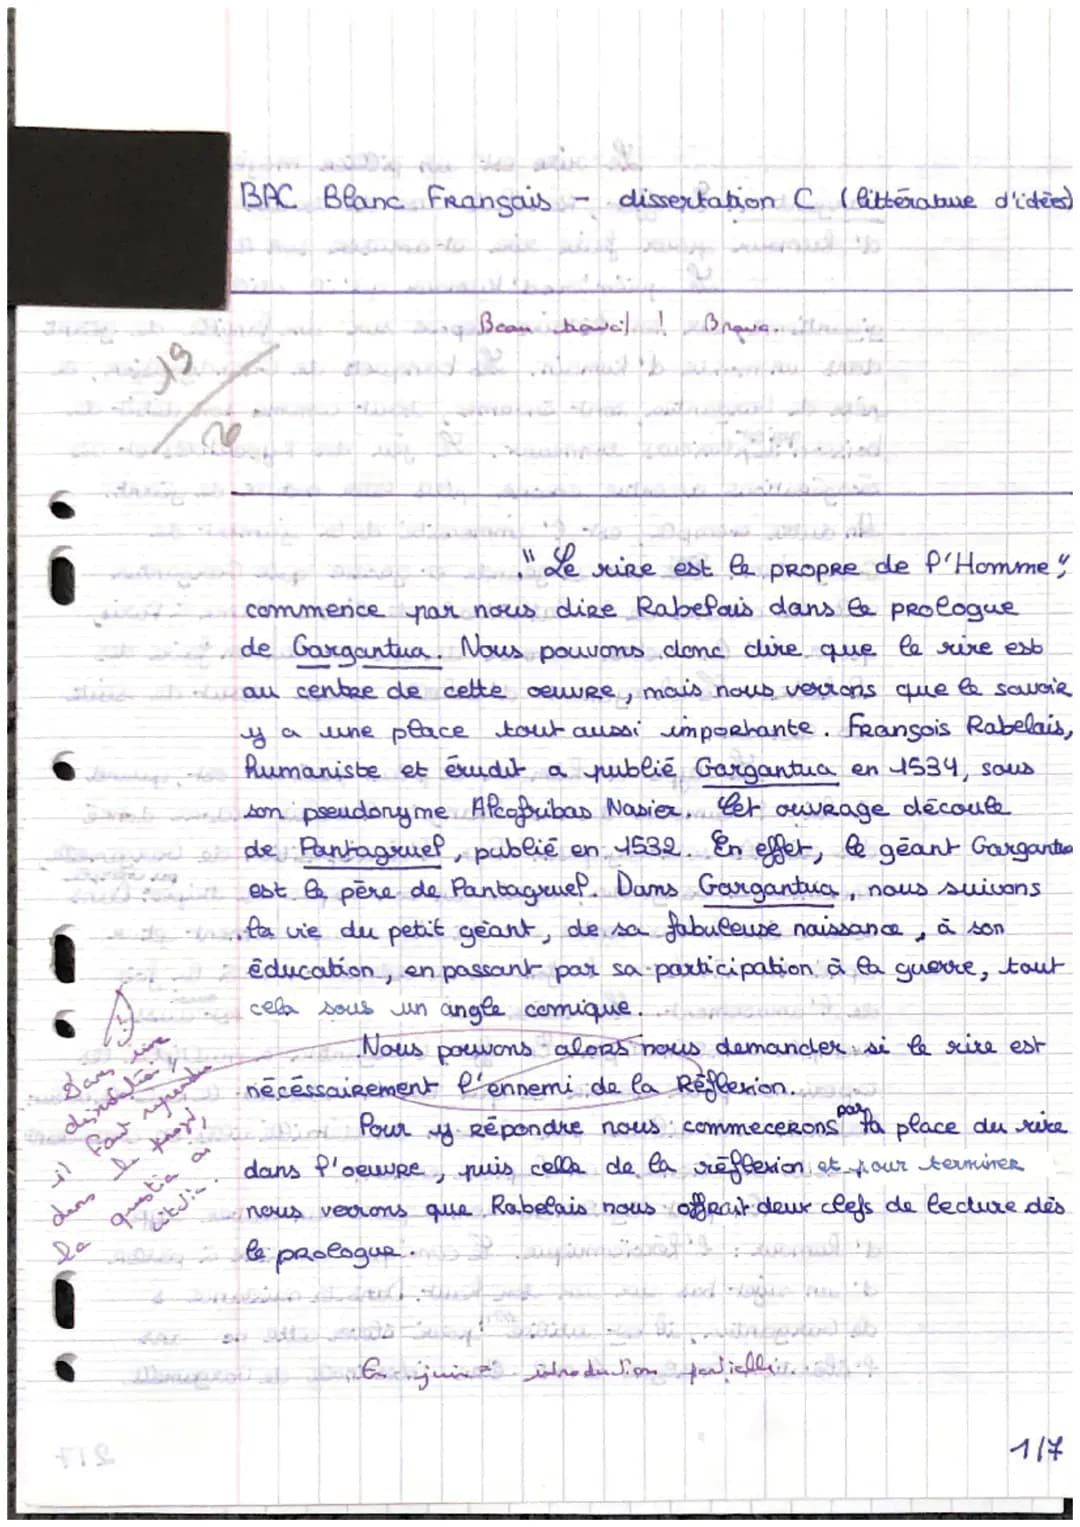 BAC Blanc Français - dissertation C (littérature d'idées)
Beau travail ! Bravo.
19/20
"Le rire est le propre de l'Homme",
commence par nous dire Rabelais dans le prologue
de Gargantua. Nous pouvons donc dire que le rire est
au centre de cette oeuvre, mais nous verrons que le savoir
y a une place tout aussi importante. François Rabelais,
humaniste et érudit a publié Gargantua en 1534, sous
son pseudonyme Alcofribas Nasier. Cet ouvrage découle
de Pantagruel, publié en 1532. En effet, le géant Gargantua
est le père de Pantagruel. Dans Gargantua, nous suivons
la vie du petit géant, de sa fabuleuse naissance, à son
éducation, en passant par sa participation à la guerre, tout
cela sous un angle comique.
Nous pouvons alors nous demander si le rire est
nécéssairement l'ennemi de la Réflexion.
Pour y Répondre nous commecerons par la place du rire
dans l'oeuvre, puis celle de la réflexion et pour terminer
nous verrons que Rabelais nous offrait deux clefs de lecture dès
le prologue.
Dans une
dissertation,
il faut reprendre
dans le projet,
la question ou
citation.
En juin = introduction partielle.
1/7